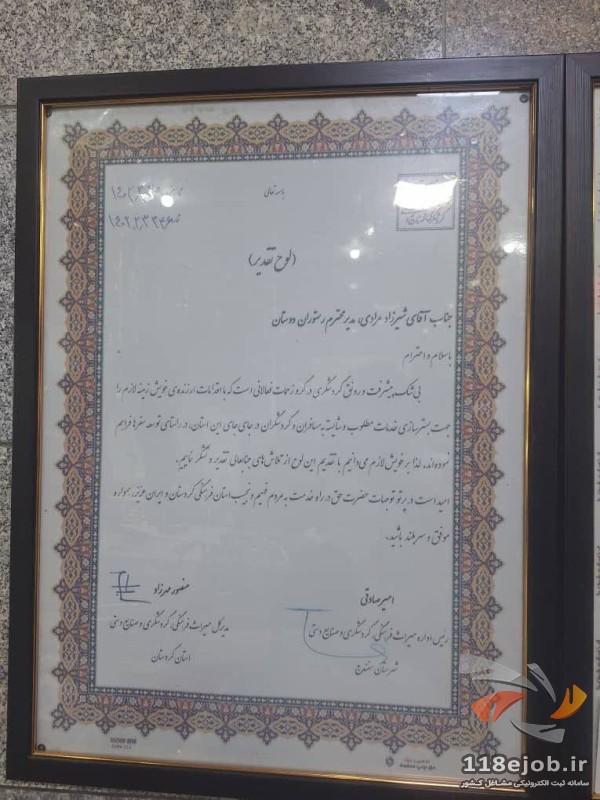 باسمه تعالی
(لوح تقدیر)
جناب آقای شیرزاد مرادی، مدیر محترم رستوران دوستان
باسلام و احترام
بی شک، پیشرفت و رونق گردشگری در گرو زحمات فعالانی است که با اقدامات ارزنده‌ی خویش زمینه لازم را
جهت بسترسازی خدمات مطلوب و شایسته به مسافران و گردشگران در جای جای این استان، در راستای توسعه سفرها فراهم
نموده‌اند. لذا بر خویش لازم می‌دانیم با تقدیم این لوح از تلاش‌های جنابعالی تقدیر و تشکر نماییم.
امید است در پرتو توجهات حضرت حق در راه خدمت به مردم فهیم و نجیب استان فرهنگی کردستان و ایران عزیز، همواره
موفق و سربلند باشید.
امیر صادقی
رئیس اداره میراث فرهنگی، گردشگری و صنایع دستی
شهرستان سنندج
منصور مهرزاد
مدیرکل میراث فرهنگی، گردشگری و صنایع دستی
استان کردستان
118ejob.ir
سامانه ثبت الکترونیکی مشاغل کشور